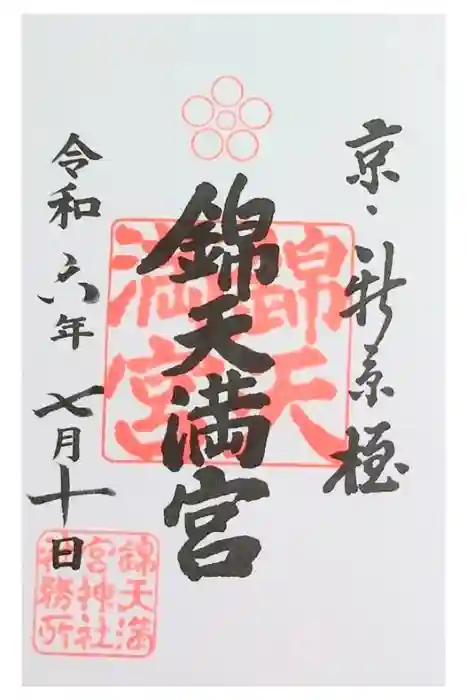 京・新京極
錦天満宮
錦天
満宮
令和六年七月十日
錦天満
宮神社
社務所